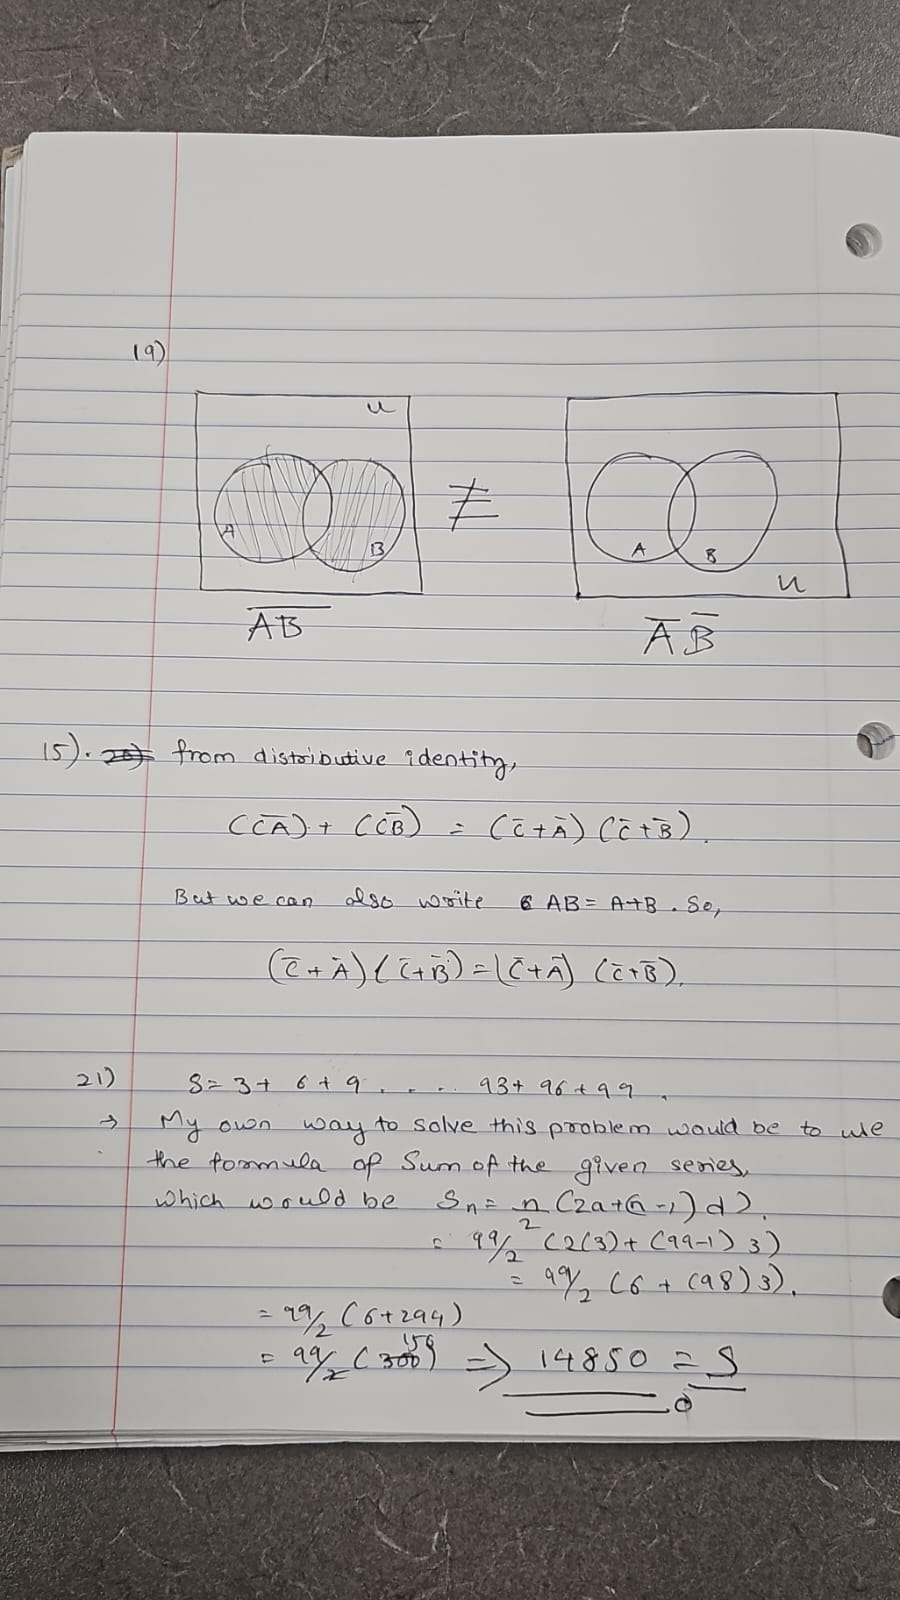 19)
u
A
B
≠
A
B
u
A̅B̅
A̅ B̅
15). from distributive identity,
(CA̅) + (CB̅) = (C̅+A̅) (C̅+B̅).
But we can also write AB = A+B. So,
(C̅+A̅) (C̅+B̅) = (C̅+A̅) (C̅+B̅).
21) S = 3 + 6 + 9 . . . . 93 + 96 + 99 .
→ My own way to solve this problem would be to use
the formula of Sum of the given series,
which would be Sn = n/2 (2a+(n-1)d).
= 99/2 (2(3) + (99-1) 3)
= 99/2 (6 + (98) 3).
= 99/2 (6+294)
= 99/2 (300) 150 ⇒ 14850 = S